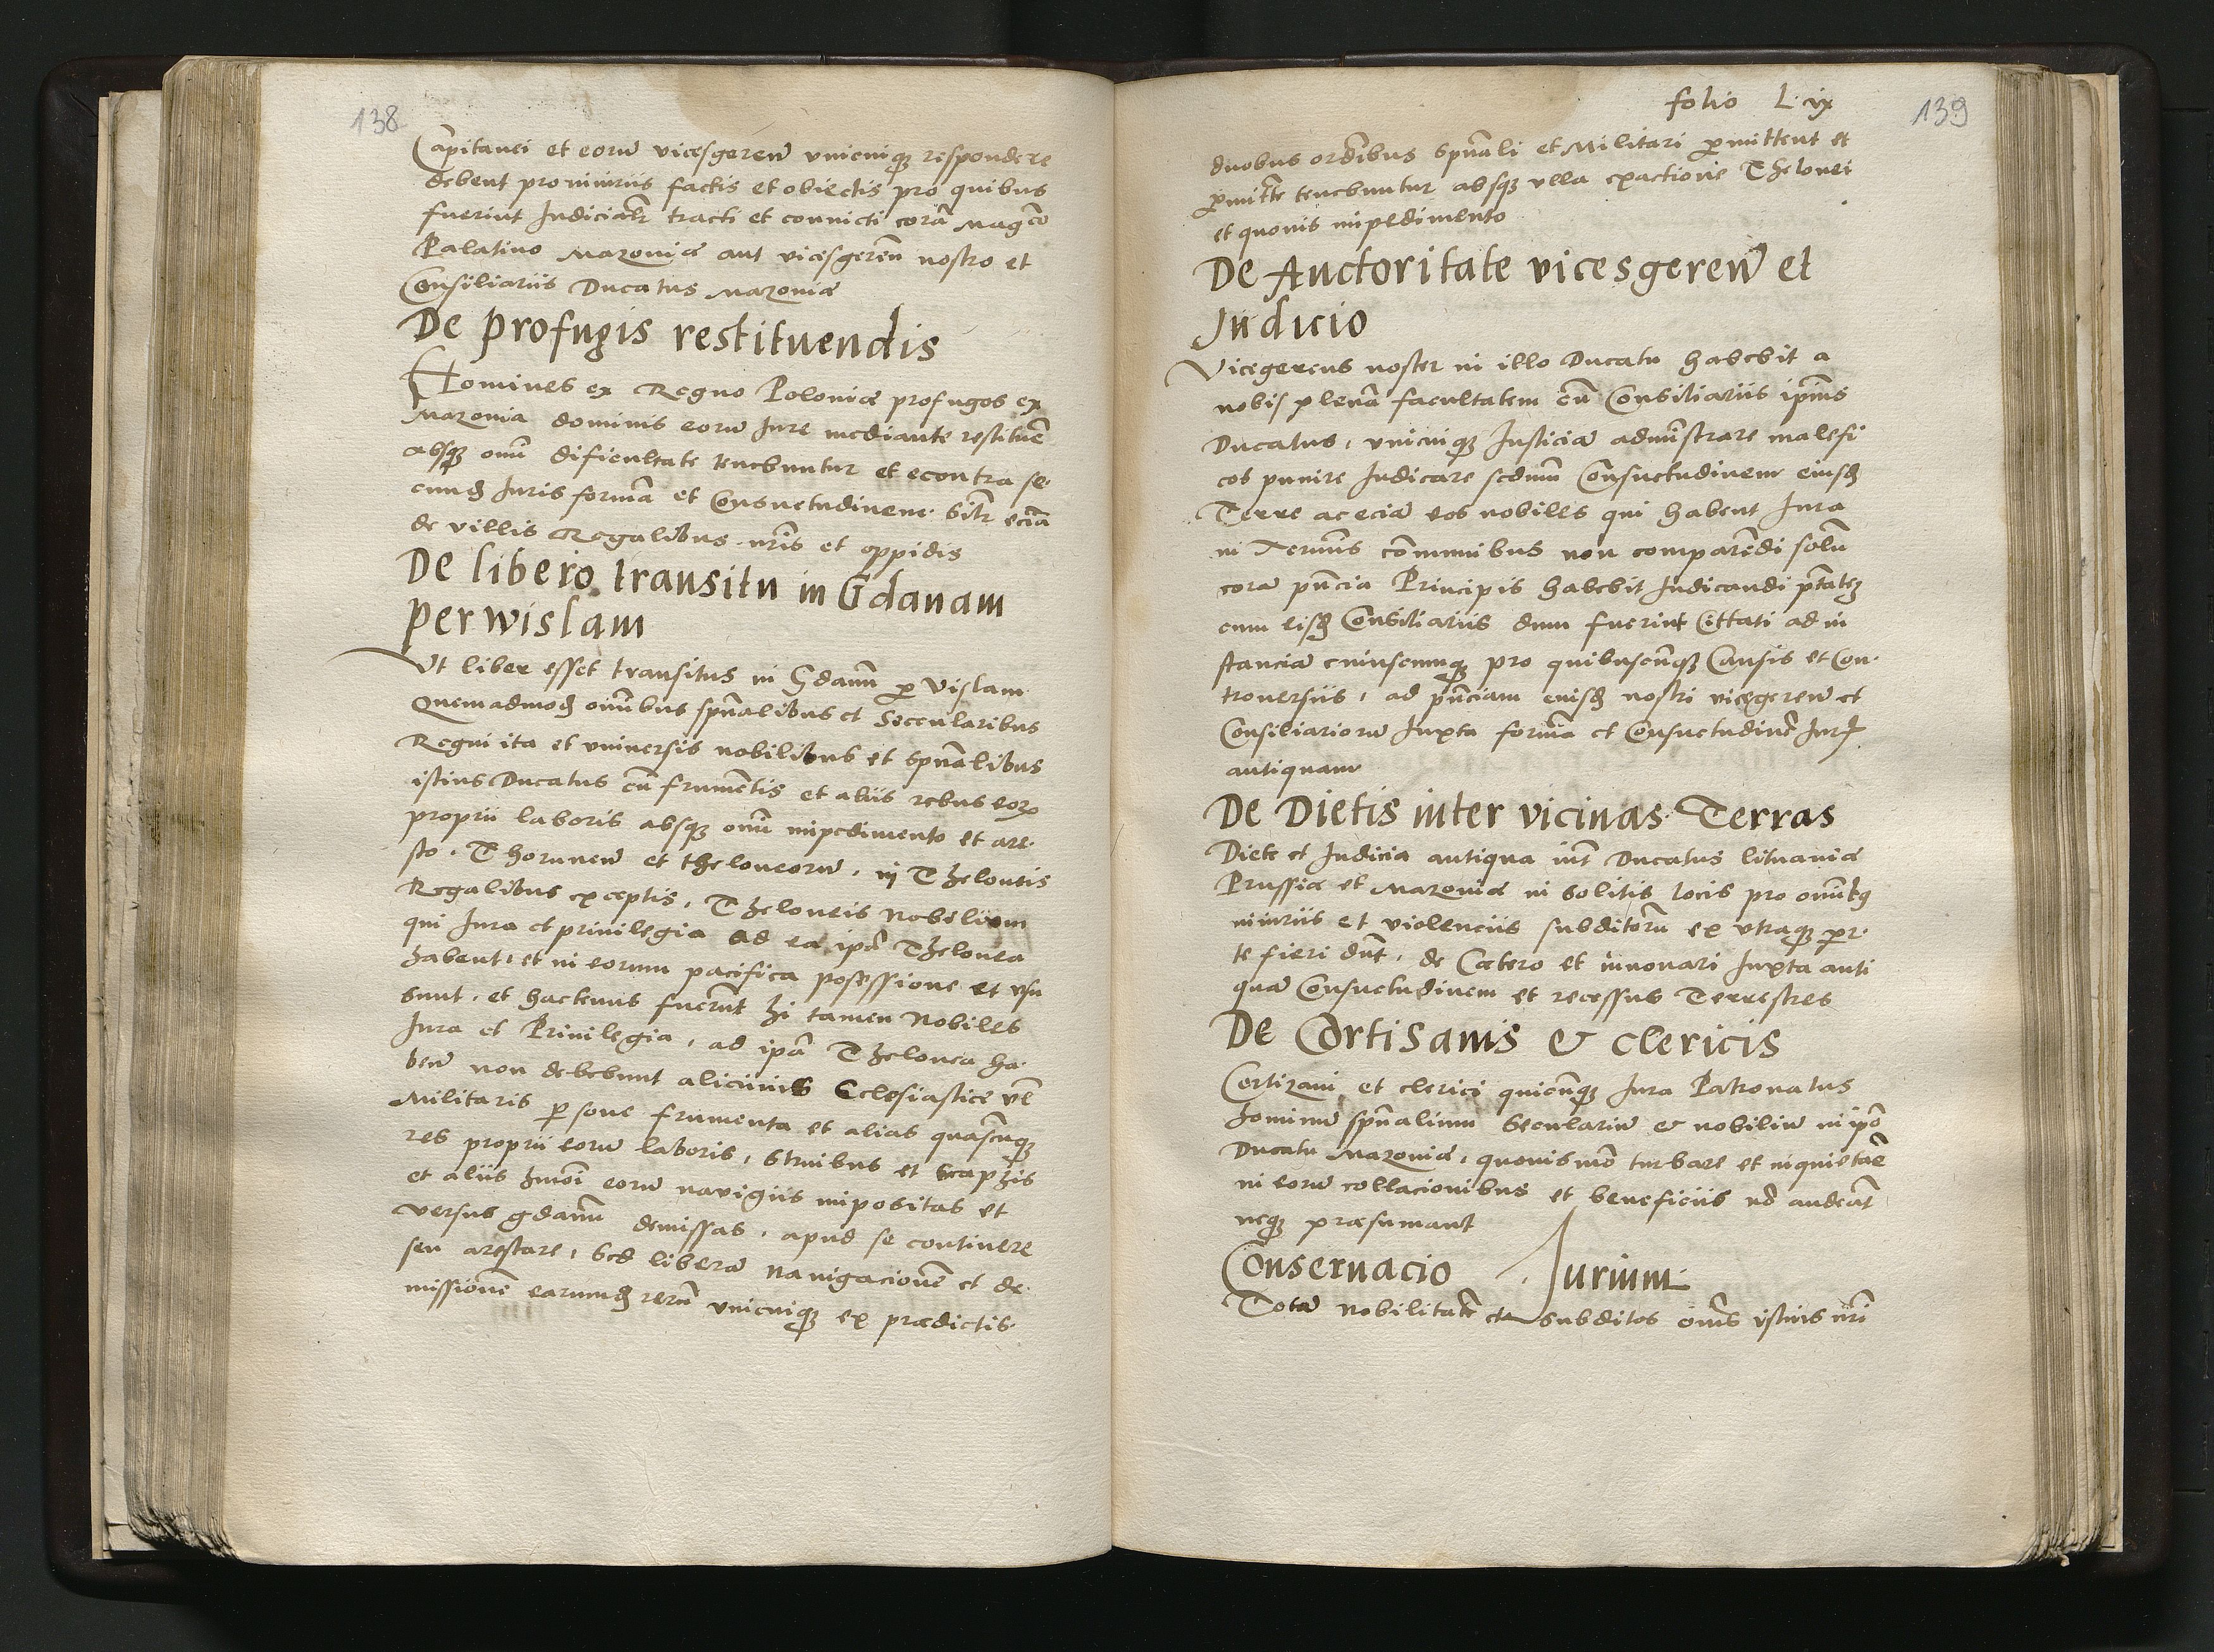 138
Capitanei et eorũ vicesgeren̄ vnicuiq3 respondere
debent pro iniuriis factis et obiectis pro quibus
fuerint Iudicialr̄ tracti et conuicti corã Magco
Palatino Mazouiæ aut vicesgeren̄ nostro et
Consiliariis Ducatus Mazouiæ
De profugis restituendis
Homines ex Regno Poloniæ profugos ex
Mazouia dominis eorũ Iure mediante restituẽ
absq3 oṁi dificultate tenebuntur et econtra se-
cund3 Iuris formã et Consuetudinem sılr eciã
de villis Regalibus nr̄is et oppidis
De libero transitu in Gdanam
per wislam
Vt liber esset transitus in Gdanũ p Vislam
Quemadmod3 oṁibus spũalibus et Seccularibus
Regni ita et vniuersis nobilibus et spũalibus
istius Ducatus cũ frumẽtis et aliis rebus eor3
proprii laboris absq3 oṁi impedimento et are-
sto. Thorunen̄ et theloneorũ, in Theloneis
Regalibus exceptis, Theloneis Nobilium
qui Iura et priuilegia ad ea ip̃a Thelonea
habent, et in eorum pacifica posessione et vsu
sunt, et hactenus fuerũt hi tamen Nobiles
Iura et Priuilegia, ad ip̃a Thelonea ha-
ben̄ non debebunt alicuius Eclesiastice vl̄
Militaris p sone frumenta et alias quascũq3
res proprii eorũ laboris, Struibus et Scaphis
et aliis hmõi eorũ nauigiis impositas et
versus gdanũ demissas, apud se continere
seu arestare, Sed liberã Nauigacionẽ et de-
missionẽ earumd3 rerũ vnicuiq3 ex prædictis
folio L ix
139
duobus ordĩbus Spũali et Militari p̱mittent et
p̱mittẽ tenebuntur absq3 vlla exactione Thelonei
et quouis impedimento
De Auctoritate vicesgeren̄ et
Iudicio
Vicegerens noster in illo Ducatu habebit a
nobis plenã facultatem cũ Consiliariis ip̃ius
Ducatus, vnicuiq3 Iusticiã admĩstrare malefi
cos punire Iudicare scdum Consuetudinem eiusd3
Terre ac eciã eos nobiles qui habent Iura
in Termĩs cõmunibus non comparẽdi solũ
corã pñcia Principis habebit Iudicandi p̃tatẽ
cum eisd3 Consiliariis dum fuerint Cittati ad in
stanciã cuiuscunq3 pro quibuscũq3 Causis et Con-
trouersiis, ad pñciam eiusd3 nostri vicegeren̄ et
Consiliariorũ Iuxta formã et Consuetudinẽ Iuris
antiquam
De Dietis inter vicinas Terras
Diete et Iudicia antiqua int̃ Ducatus lituaniæ
Prussiæ et Mazouiæ in Solitis locis pro oṁibus
iniuriis et violenciis subditorũ ex vtraq3 par-
te fieri dñt, de Cætero et innouari Iuxta anti
quã Consuetudinem et recessus Terrestres
De Cortisanis & clericis
Cortizani et clerici quicũq3 Iura Patronatus
hominũ spũalium Seculariũ & nobiliũ in ip̃o
Ducatu Mazouiæ, quouismõ turbare et inquietaẽ
in eorũ collacionibus et beneficiis nõ audeãt
neq3 præsumant
Conseruacio Iurium
Totã Nobilitatẽ et subditos oṁs istius nr̃i